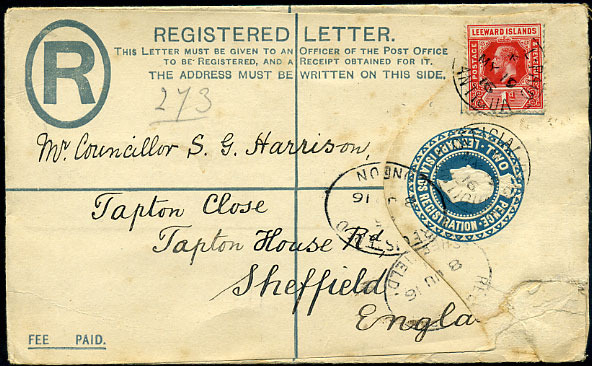 REGISTERED LETTER.
THIS LETTER MUST BE GIVEN TO AN OFFICER OF THE POST OFFICE
TO BE REGISTERED, AND A RECEIPT OBTAINED FOR IT.
THE ADDRESS MUST BE WRITTEN ON THIS SIDE.
R
273
LEEWARD ISLANDS
POSTAGE
1d
Mr. Councillor S. G. Harrison,
Tapton Close
Tapton House Rd.
Sheffield
Engla
LEEWARD ISLANDS REGISTRATION
TWO PENCE
FEE PAID.